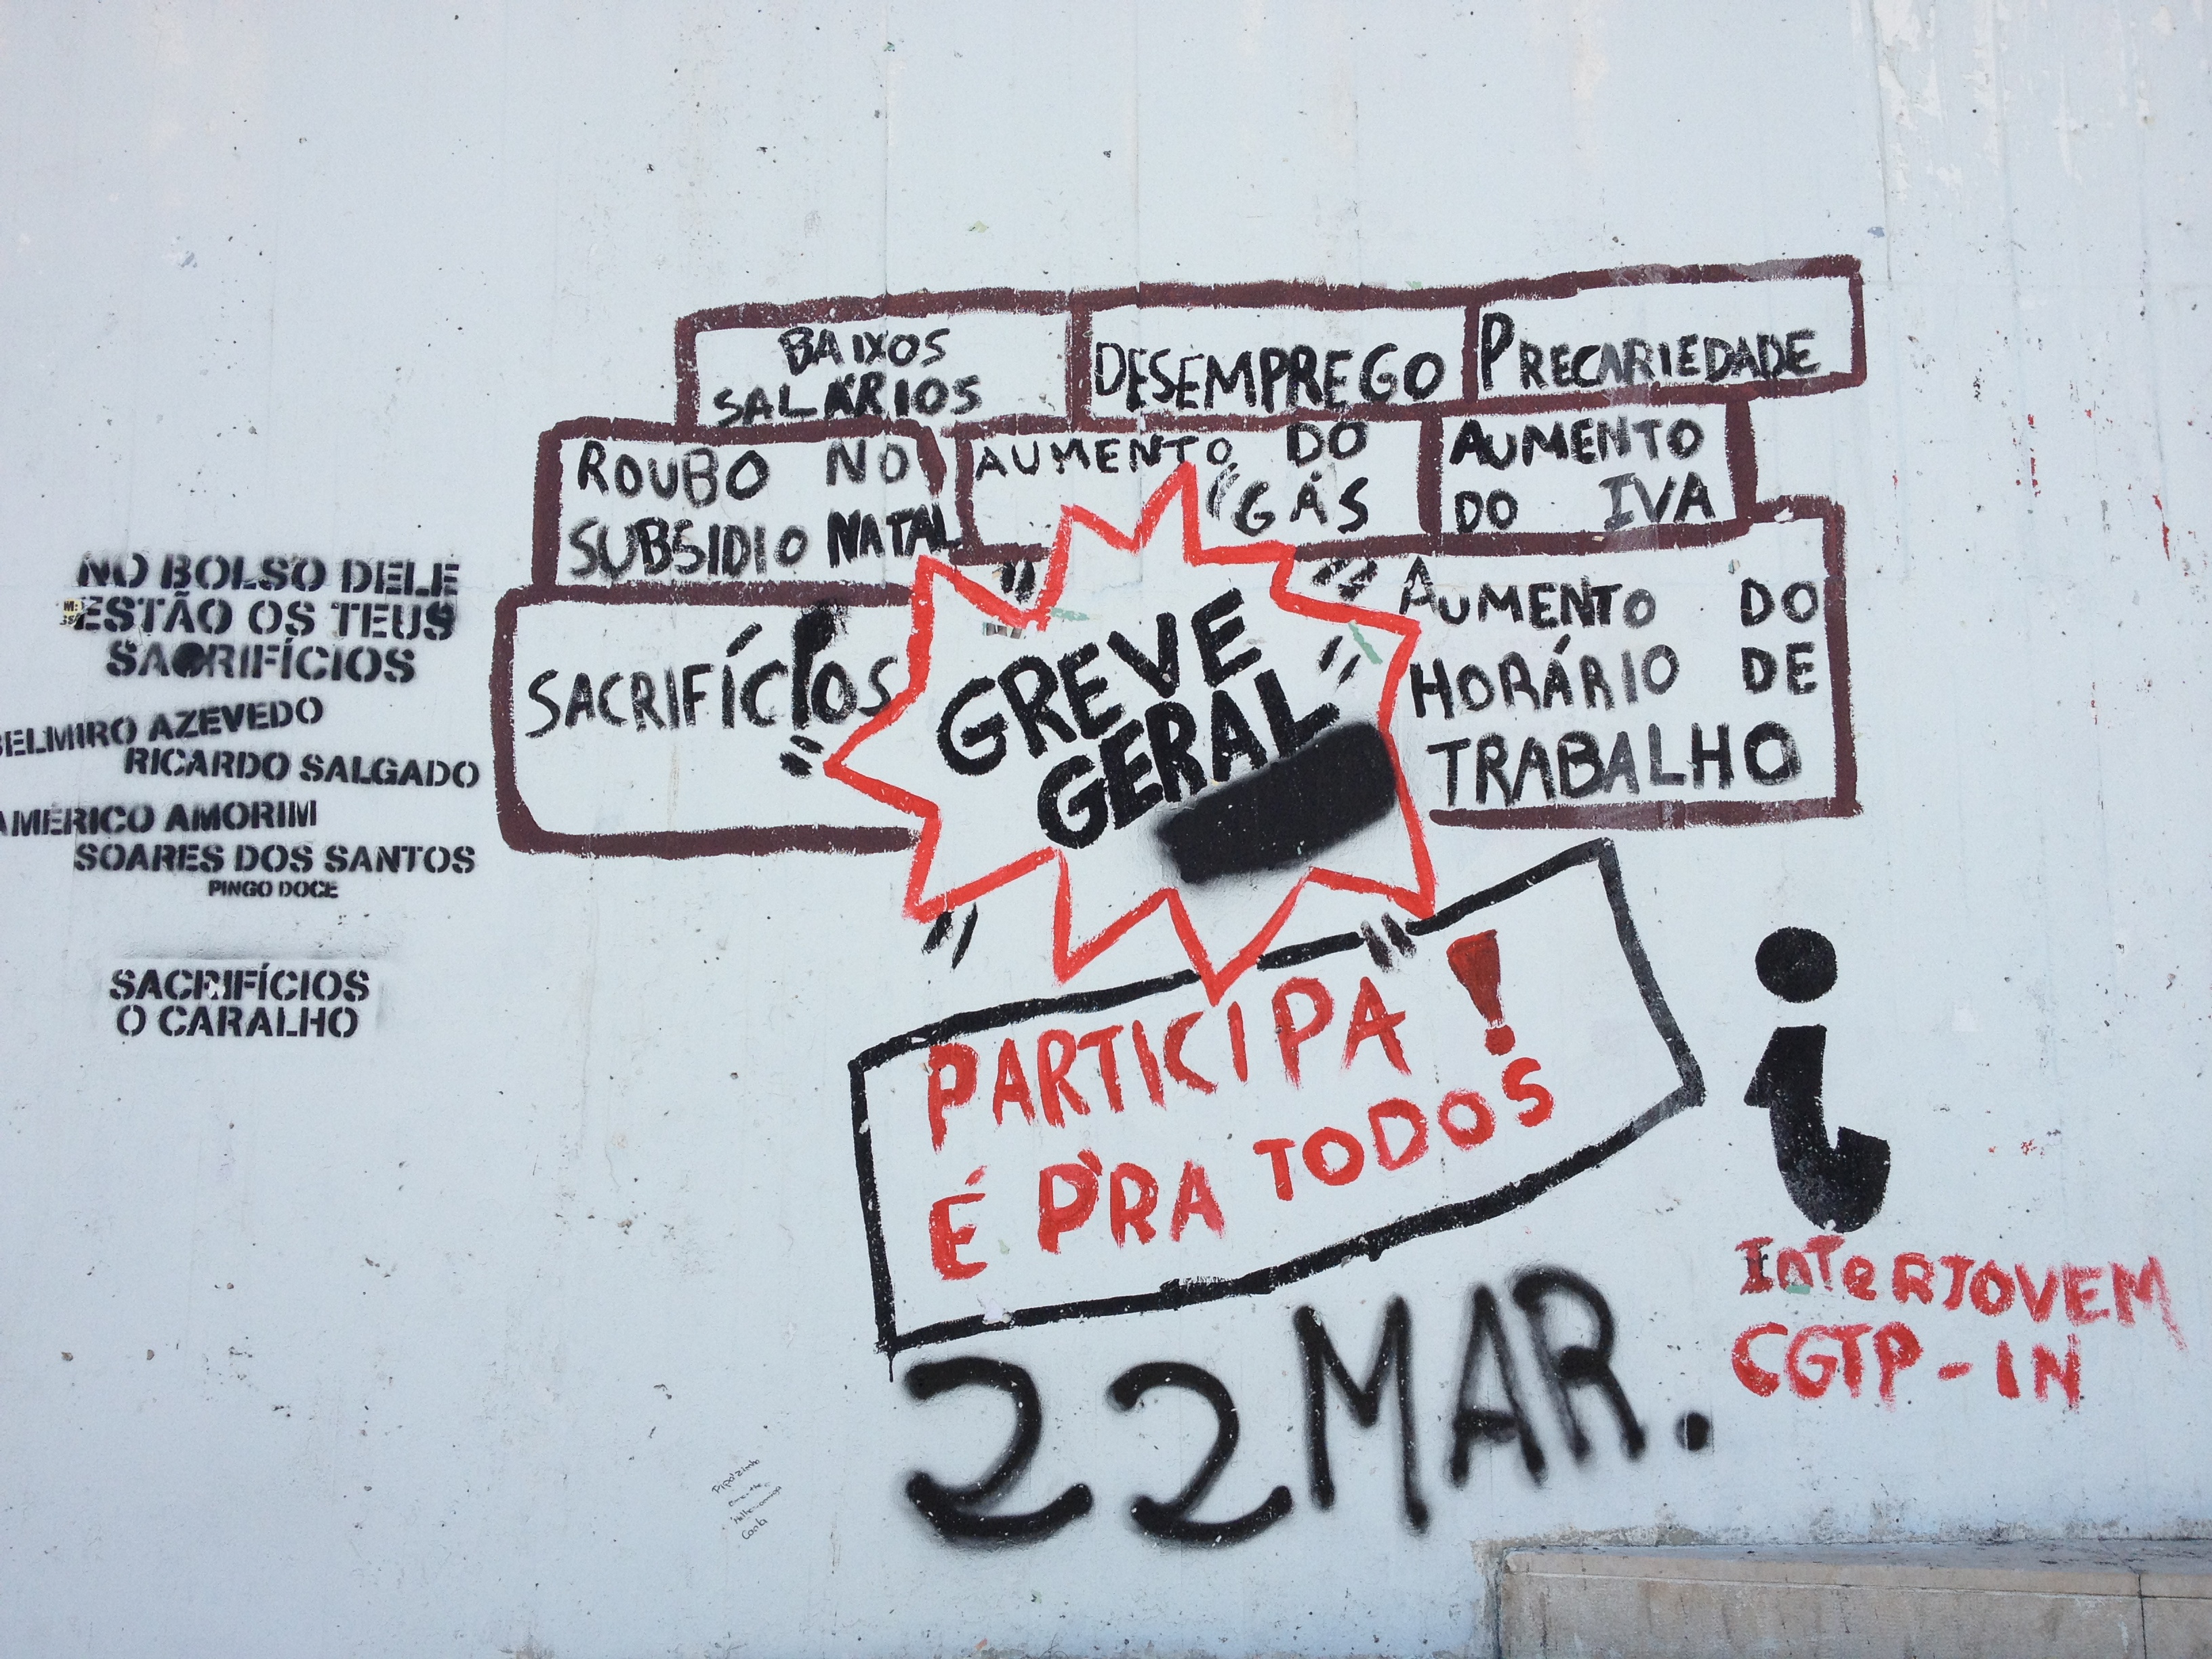 BAIXOS
SALÁRIOS
DESEMPREGO
PRECARIEDADE
ROUBO NO
SUBSIDIO NATAL
AUMENTO DO
GÁS
AUMENTO
DO IVA
SACRIFÍCIOS
GREVE
GERAL
AUMENTO DO
HORÁRIO DE
TRABALHO
PARTICIPA!
É P'RA TODOS
22 MAR.
InteRJOVEM
CGTP-IN
NO BOLSO DELE
ESTÃO OS TEUS
SACRIFÍCIOS
BELMIRO AZEVEDO
RICARDO SALGADO
AMÉRICO AMORIM
SOARES DOS SANTOS
PINGO DOCE
SACRIFÍCIOS
O CARALHO